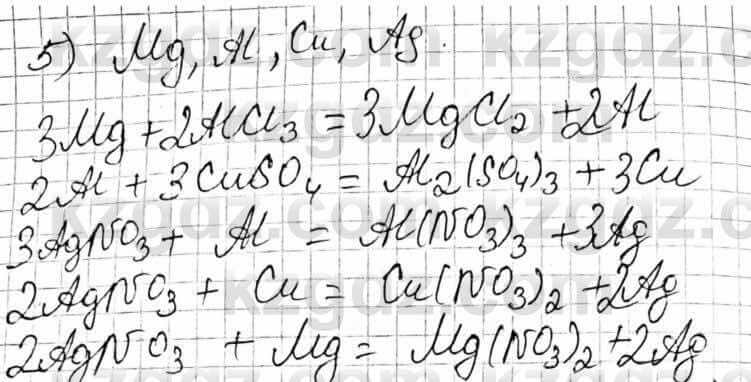 5) Mg, Al, Cu, Ag.
3Mg + 2AlCl₃ = 3MgCl₂ + 2Al
2Al + 3CuSO₄ = Al₂(SO₄)₃ + 3Cu
3AgNO₃ + Al = Al(NO₃)₃ + 3Ag
2AgNO₃ + Cu = Cu(NO₃)₂ + 2Ag
2AgNO₃ + Mg = Mg(NO₃)₂ + 2Ag
kzgdz.com